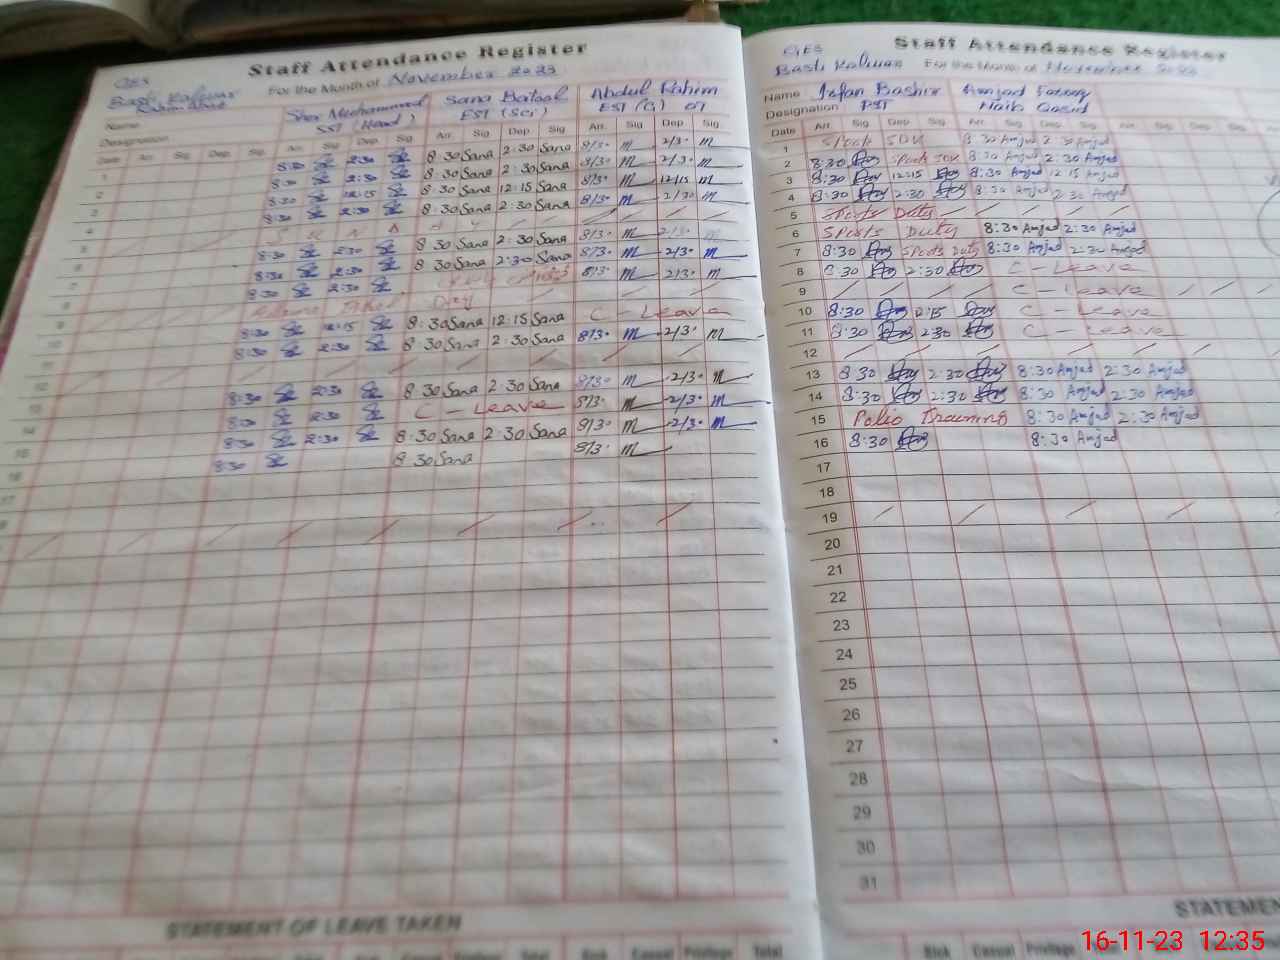 Staff Attendance Register
GES
Bash Kalwar
For the Month of November 2023
Name
Sher Muhammad
Sana Batool
Abdul Rahim
Designation
SST (Head)
EST (Sci)
EST (G) 07
Date Arr. Sig. Dep. Sig. Arr. Sig Dep Sig Arr. Sig Dep. Sig Arr. Sig Dep Sig.
1 8:30 2:30 8:30 Sana 2:30 Sana 8/30 m 2/30 m
2 8:30 2:30 8:30 Sana 2:30 Sana 8/30 m 2/30 m
3 8:30 12:15 8:30 Sana 12:15 Sana 8/30 m 12/15 m
4 8:30 2:30 8:30 Sana 2:30 Sana 8/30 m 2/30 m
5 S U N D A Y
6 8:30 2:30 8:30 Sana 2:30 Sana 8/30 m 2/30 m
7 8:30 2:30 8:30 Sana 2:30 Sana 8/30 m 2/30 m
8 8:30 2:30 8/30 m 2/30 m
9 Allama Iqbal Day
10 8:30 12:15 8:30 Sana 12:15 Sana C - Leave
11 8:30 2:30 8:30 Sana 2:30 Sana 8/30 m 2/30 m
12
13 8:30 2:30 8:30 Sana 2:30 Sana 8/30 m 2/30 m
14 8:30 2:30 C - Leave 8/30 m 2/30 m
15 8:30 2:30 8:30 Sana 2:30 Sana 8/30 m 2/30 m
16 8:30 8:30 Sana 8/30 m
17
STATEMENT OF LEAVE TAKEN
Sick Casual Privilege Total
Staff Attendance Register
GES
Bash Kalwar For the Month of November 2023
Name Irfan Bashir Amjad Farooq
Designation PST Naib Qasid
Date Arr. Sig Dep Sig. Arr. Sig. Dep. Sig.
1 Sports SDK 8:30 Amjad 2:30 Amjad
2 8:30 Sports SDK 8:30 Amjad 2:30 Amjad
3 8:30 12:15 8:30 Amjad 12:15 Amjad
4 8:30 2:30 8:30 Amjad 2:30 Amjad
5 Sports Duty
6 Sports Duty 8:30 Amjad 2:30 Amjad
7 8:30 Sports Duty 8:30 Amjad 2:30 Amjad
8 8:30 2:30 C - Leave
9 C - Leave
10 8:30 12:15 C - Leave
11 8:30 2:30 C - Leave
12
13 8:30 2:30 8:30 Amjad 2:30 Amjad
14 8:30 2:30 8:30 Amjad 2:30 Amjad
15 Polio Training 8:30 Amjad 2:30 Amjad
16 8:30 8:30 Amjad
17
18
19
20
21
22
23
24
25
26
27
28
29
30
31
STATEMEN
Sick Casual Privilege
16-11-23 12:35